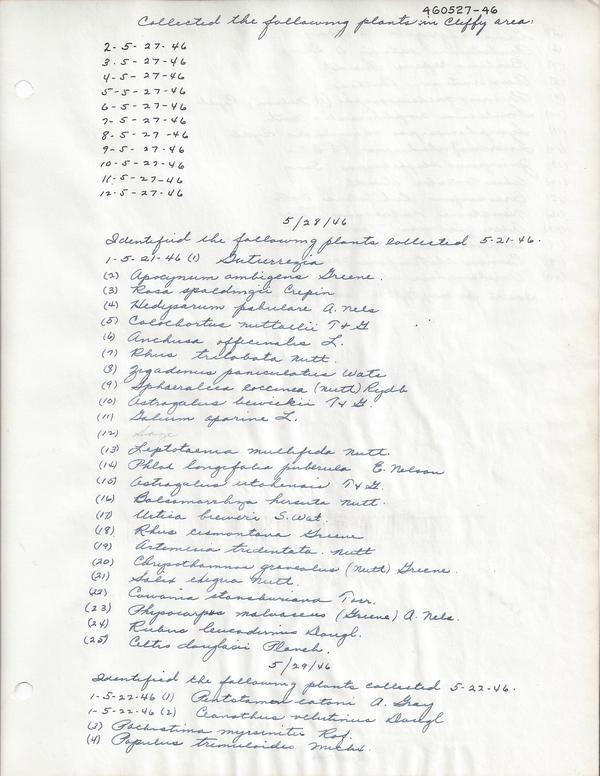 460527-46
Collected the following plants in Cliffy area:
2-5-27-46
3-5-27-46
4-5-27-46
5-5-27-46
6-5-27-46
7-5-27-46
8-5-27-46
9-5-27-46
10-5-27-46
11-5-27-46
12-5-27-46
5/28/46
Identified the following plants collected 5-21-46.
1-5-21-46 (1) Gutierrezia
(2) Apocynum ambigens Greene.
(3) Rosa spaldingii Crepin
(4) Hedysarum pabulare A. Nels
(5) Calochortus nuttallii T & G
(6) Anchusa officinalis L.
(7) Rhus trilobata Nutt.
(8) Zygadenus paniculatus Wats
(9) Sphaeralcea coccinea (Nutt) Rydb
(10) Astragalus beckwithii T & G.
(11) Galium aparine L.
(12) Sage
(13) Leptotaenia multifida Nutt.
(14) Phlox longifolia puberula E. Nelson
(15) Astragalus utahensis T & G.
(16) Balsamorrhiza hirsuta Nutt.
(17) Urtica breweri S. Wat.
(18) Rhus cismontana Greene
(19) Artemisia tridentata. Nutt
(20) Chrysothamnus graveolus (Nutt) Greene.
(21) Salix exigua Nutt.
(22) Cowania stansburiana Torr.
(23) Physocarpus malvaceus (Greene) A. Nels.
(24) Rubus leucodermis Dougl.
(25) Celtis douglasii Planch.
5/29/46
Identified the following plants collected 5-22-46.
1-5-22-46 (1) Pentstamen eatoni A. Gray
1-5-22-46 (2) Ceanothus velutinus Dougl
(3) Pachistima myrsinites Raf.
(4) Populus tremuloides Michx.